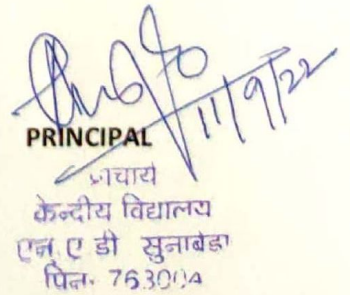 11/9/22
PRINCIPAL
प्राचार्य
केन्द्रीय विद्यालय
एन. ए डी सुनाबेडा
पिन- 763004